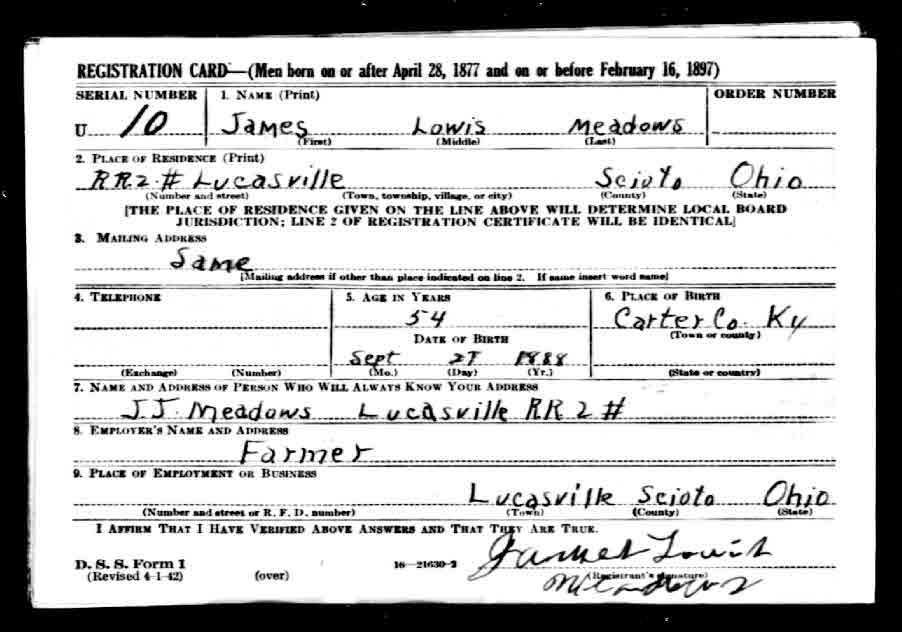 REGISTRATION CARD—(Men born on or after April 28, 1877 and on or before February 16, 1897)
SERIAL NUMBER 1. NAME (Print) ORDER NUMBER
U 10 James Lowis Meadows
(First) (Middle) (Last)
2. PLACE OF RESIDENCE (Print)
RR.2 # Lucasville Scioto Ohio
(Number and street) (Town, township, village, or city) (County) (State)
[THE PLACE OF RESIDENCE GIVEN ON THE LINE ABOVE WILL DETERMINE LOCAL BOARD
JURISDICTION; LINE 2 OF REGISTRATION CERTIFICATE WILL BE IDENTICAL]
3. MAILING ADDRESS
Same
[Mailing address if other than place indicated on line 2. If same insert word same]
4. TELEPHONE 5. AGE IN YEARS 6. PLACE OF BIRTH
54 Carter Co. Ky
DATE OF BIRTH (Town or county)
Sept 1888
(Exchange) (Number) (Mo.) (Day) (Yr.) (State or country)
7. NAME AND ADDRESS OF PERSON WHO WILL ALWAYS KNOW YOUR ADDRESS
J.J. Meadows Lucasville RR 2 #
8. EMPLOYER'S NAME AND ADDRESS
Farmer
9. PLACE OF EMPLOYMENT OR BUSINESS
Lucasville Scioto Ohio
(Number and street or R. F. D. number) (Town) (County) (State)
I AFFIRM THAT I HAVE VERIFIED ABOVE ANSWERS AND THAT THEY ARE TRUE.
D. S. S. Form 1
(Revised 4-1-42) (over) 16—21630-2 James Lowis
(Registrant's signature)
Meadows